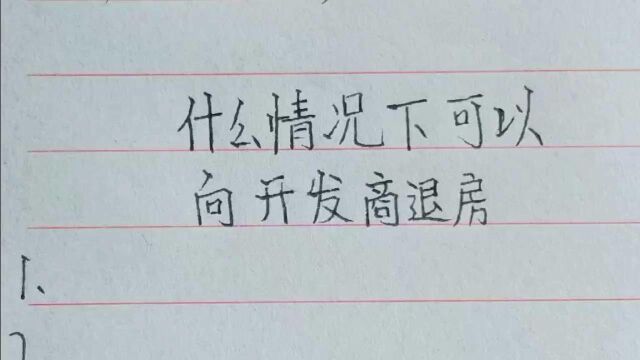 什么情况下可以
向开发商退房
1、